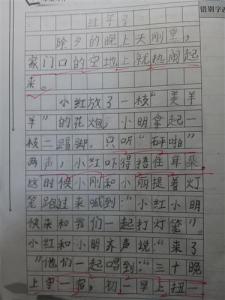 过年了
除夕的晚上天刚黑,
家门口的空地上就热闹起
来。
小红放了一枚"美羊
羊"的花炮,小明拿起一
枚二踢脚,只听"砰啪"
两声,小红吓得捂住耳朵。
这时候小刚和小丽提着灯
笼跑过来喊到:"小红小明
快来和我们一起打灯笼"。
小红和小明齐声说:"来了
"他们一起唱到:"三十晚
上 一 初一早上扭一
错别字改